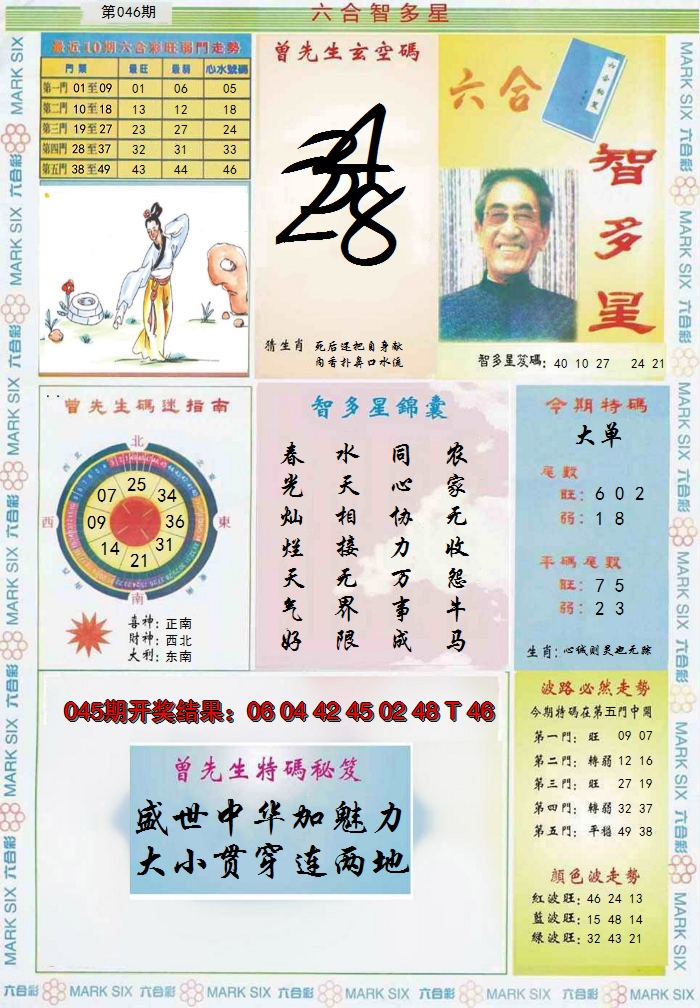 第046期
六合智多星
最近10期六合彩旺弱門走勢
門 類 最旺 最弱 心水號碼
第一門 01至09 01 06 05
第二門 10至18 13 12 18
第三門 19至27 23 27 24
第四門 28至37 32 31 33
第五門 38至49 43 44 46
曾先生玄空碼
猜生肖 死后还把自身献
肉香扑鼻口水流
六合
六合秘笈
智多星
智多星笈碼: 40 10 27 24 21
曾先生碼迷指南
北
東
南
西
西北
東北
25
34
36
31
21
14
09
07
喜神: 正南
財神: 西北
大利: 东南
智多星錦囊
春光灿烂天气好
水天相接无界限
同心协力万事成
农家无收怨牛马
今期特碼
大单
尾數
旺: 6 0 2
弱: 1 8
平碼尾數
旺: 7 5
弱: 2 3
生肖: 心诚则灵也无踪
045期开奖结果: 06 04 42 45 02 48 T 46
曾先生特碼秘笈
盛世中华加魅力
大小贯穿连两地
波路必然走勢
今期特碼在第五門中開
第一門: 旺 09 07
第二門: 轉弱 12 16
第三門: 旺 27 19
第四門: 轉弱 32 37
第五門: 平穩 49 38
顏色波走勢
紅波旺: 46 24 13
藍波旺: 15 48 14
綠波旺: 32 43 21
MARK SIX 六合彩